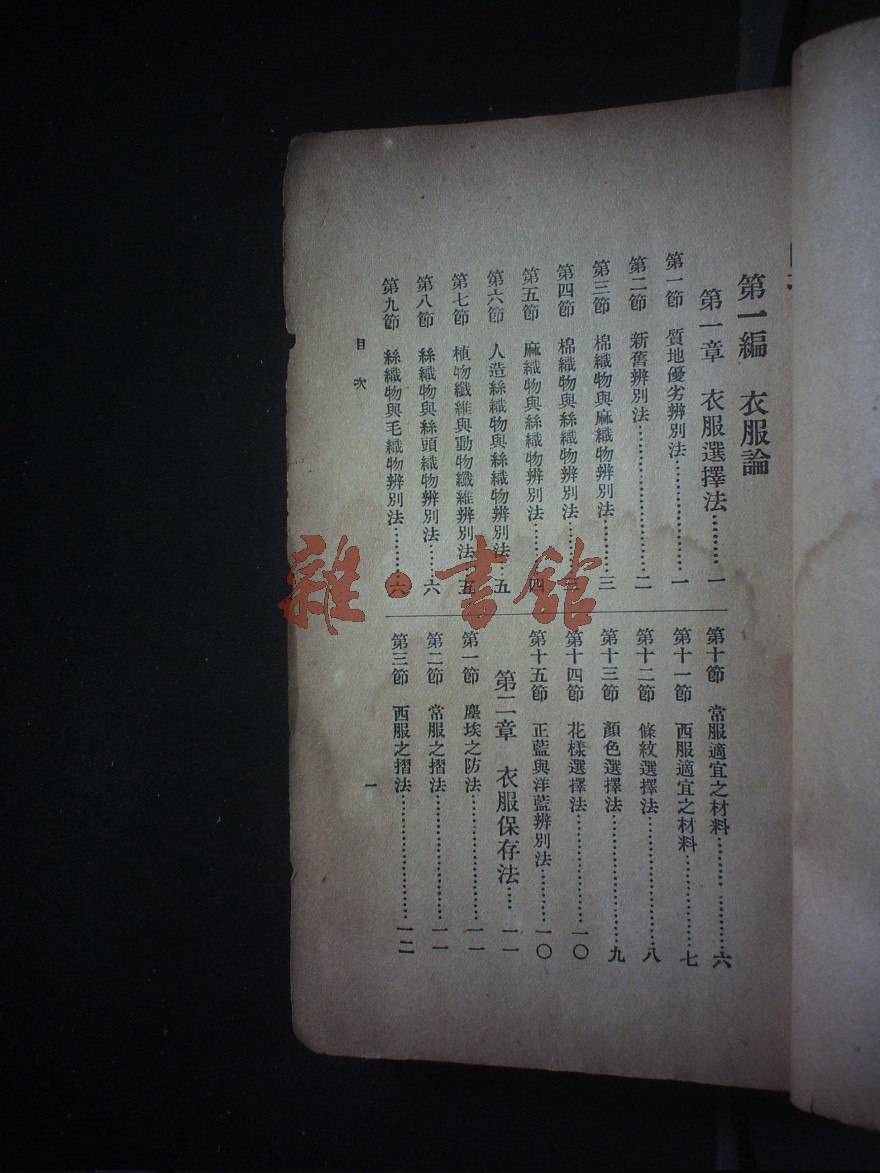 第一編　衣服論
第一章　衣服選擇法………一
第一節　質地優劣辨別法………………一
第二節　新舊辨別法………………二
第三節　棉織物與麻織物辨別法………三
第四節　棉織物與絲織物辨別法………三
第五節　麻織物與絲織物辨別法………四
第六節　人造絲織物與絲織物辨別法…五
第七節　植物纖維與動物纖維辨別法…五
第八節　絲織物與絲頭織物辨別法……六
第九節　絲織物與毛織物辨別法………六
第十節　常服適宜之材料………………六
第十一節　西服適宜之材料……………七
第十二節　條紋選擇法…………………八
第十三節　顏色選擇法…………………九
第十四節　花樣選擇法………………一〇
第十五節　正藍與洋藍辨別法………一〇
第二章　衣服保存法……一一
第一節　塵埃之防法…………………一一
第二節　常服之摺法…………………一一
第三節　西服之摺法…………………一二
目次
一
雜·書館